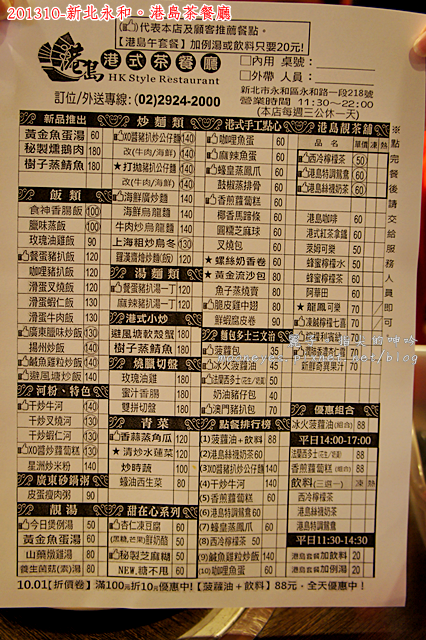 201310-新北永和。港島茶餐廳
代表本店及顧客推薦餐點。
【港島午套餐】加例湯或飲料只要20元!
港島 港式茶餐廳
HK Style Restaurant
內用 桌號:
外帶 人員:
新北市永和區永和路一段218號
訂位/外送專線: (02)2924-2000
營業時間 11:30~22:00
(本店每週三公休一天)
新品推出
黃金魚蛋湯 60
秘製燻鵝肉 180
樹子蒸鯖魚 180
飯類
食神香腸飯 100
臘味蒸飯 100
玫瑰油雞飯 90
餐蛋豬扒飯 120
咖哩豬扒飯 120
滑蛋叉燒飯 120
滑蛋蝦仁飯 130
滑蛋牛肉飯 130
廣東臘味炒飯 130
揚州炒飯 140
鹹魚雞粒炒飯 140
避風塘炒飯 140
河粉、特色
干炒牛河 140
干炒叉燒河 130
干炒蝦仁河 130
XO醬炒蘿蔔糕 130
星洲炒米粉 140
廣東砂鍋粥
皮蛋瘦肉粥 90
靚湯
今日煲例湯 50
黃金魚蛋湯 60
山藥燉雞湯 80
養生菌菇(素)湯 80
炒麵類
XO醬豬扒炒公仔麵 130
改(牛肉/海鮮) 140
★打拋豬扒炒公仔麵 130
改(牛肉/海鮮) 140
海鮮廣炒麵 140
海鮮炒烏龍麵 140
牛肉炒烏龍麵 140
上海粗炒烏冬 130
羅漢齋燴炒麵(素) 130
湯麵類
餐蛋豬扒湯一丁 120
麻辣豬扒湯一丁 120
港式小炒
避風塘軟殼蟹 180
樹子蒸鯖魚 180
燒臘切盤
玫瑰油雞 180
蜜汁香腸 180
雙拼切盤 180
青菜
香蒜蒸角瓜 120
★清炒水蓮菜 120
炒時蔬 100
蠔油西生菜 80
甜在心系列
杏仁凍豆腐 60
(黑糖,芒果)鮮奶酪 50
秘製芝麻糊 50
NEW,糖不甩 60
港式手工點心
咖哩魚蛋 60
麻辣魚蛋 60
蠔皇蒸鳳爪 60
豉椒蒸排骨 60
香煎蘿蔔糕 60
椰香馬蹄條 60
圓糯芝麻球 60
叉燒包 60
★螺絲奶香卷 60
★黃金流沙包 60
魚子蒸燒賣 80
脆皮雞中翅 80
鮮蝦腐皮卷 90
麵包多士三文治
菠蘿包 35
冰火菠蘿油 45
法蘭西多士 50
奶油豬仔包 40
澳門豬扒包 70
點餐排行榜
(1)菠蘿油+飲料 88
(2)港島絲襪奶茶 60
(3)XO醬豬扒炒公仔麵 130
(4)干炒牛河 140
(5)香煎蘿蔔糕 60
(6)港島特調鴛鴦 60
(7)蠔皇蒸鳳爪 60
(8)西冷檸檬茶 50
(9)鹹魚雞粒炒飯 140
(10)咖哩魚蛋 60
港島靚茶舖
品名 單價 凍 熱
西冷檸檬茶 50
港島特調鴛鴦 60
港島絲襪奶茶 60
港島咖啡 60
港式紅茶拿鐵 60
萊姆可樂 50
蜂蜜檸檬水 50
蜂蜜檸檬茶 60
阿華田 60
★龍鳳可樂 70
凍鹹檸檬七喜 70
新鮮奇異果汁 70
優惠組合
冰火菠蘿油(組合) 88
平日14:00-17:00
香煎蘿蔔糕(組合) 88
飲料(三選一) 凍 熱
西冷檸檬茶
港島絲襪奶茶
港島特調鴛鴦
平日11:30-14:30
港島套餐加飲料 20
港島套餐加例湯 20
※點完餐後請交給服務人員即可
10.01【折價卷】滿100元折10元優惠中!【菠蘿油+飲料】88元,全天優惠中!